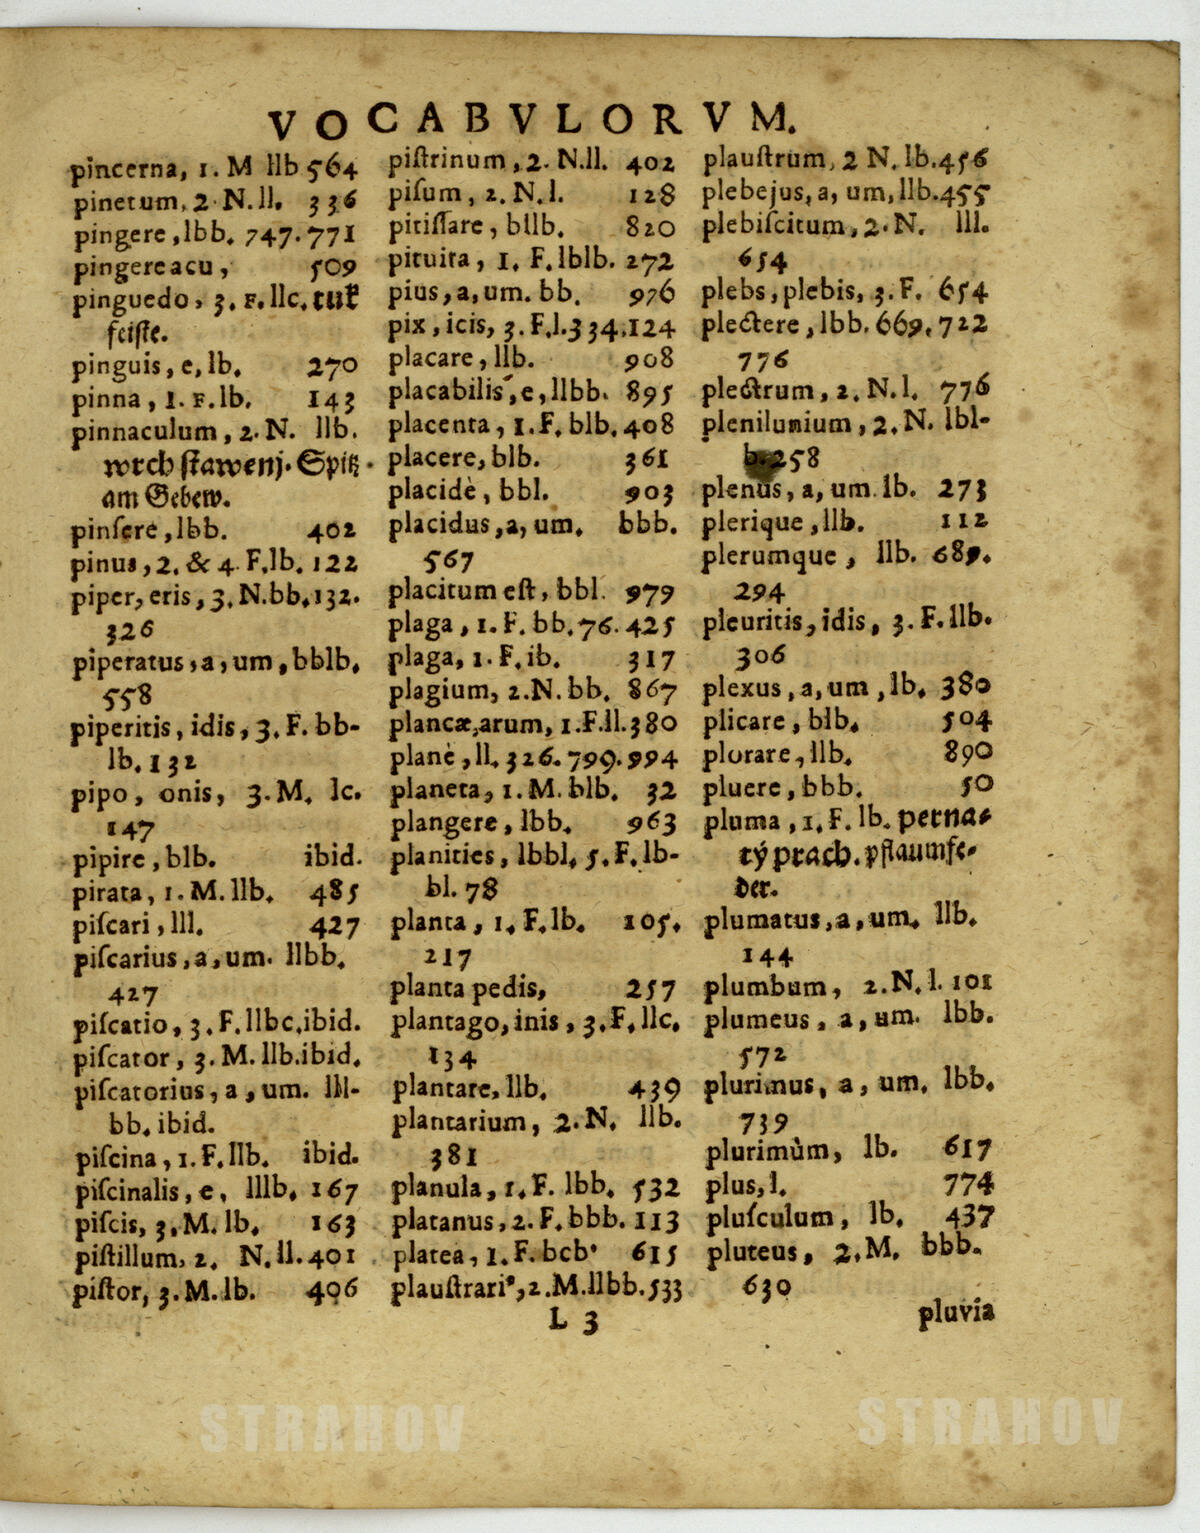 VOCABVLORVM.
pincerna, 1. M llb 564
pinetum, 2 N. ll. 336
pingere, lbb. 747. 771
pingere acu, 509
pinguedo, 3. F. llc. tuk
feiste.
pinguis, e, lb. 270
pinna, 1. F. lb. 143
pinnaculum, 2. N. llb.
wrch stawenj. Spitz
am Gebew.
pinſere, lbb. 402
pinus, 2. & 4 F. lb. 122
piper, eris, 3. N. bb. 132.
326
piperatus, a, um, bblb.
558
piperitis, idis, 3. F. bb-
lb. 132
pipo, onis, 3. M. lc.
147
pipire, blb. ibid.
pirata, 1. M. llb. 485
piſcari, lll. 427
piſcarius, a, um. llbb.
427
piſcatio, 3. F. llbc. ibid.
piſcator, 3. M. llb. ibid.
piſcatorius, a, um. lll-
bb. ibid.
piſcina, 1. F. llb. ibid.
piſcinalis, e, lllb. 167
piſcis, 3. M. lb. 163
piſtillum, 2. N. ll. 401
piſtor, 3. M. lb. 406
piſtrinum, 2. N. ll. 402
piſum, 2. N. l. 128
pitiſſare, bllb. 820
pituita, 1. F. lblb. 272
pius, a, um. bb. 976
pix, icis, 3. F. l. 334. 124
placare, llb. 908
placabilis, e, llbb. 895
placenta, 1. F. blb. 408
placere, blb. 361
placidè, bbl. 903
placidus, a, um. bbb.
567
placitum eſt, bbl. 979
plaga, 1. F. bb. 76. 425
plaga, 1. F. ib. 317
plagium, 2. N. bb. 867
plancæ, arum, 1. F. ll. 380
planè, ll. 326. 799. 994
planeta, 1. M. blb. 32
plangere, lbb. 963
planities, lbbl. 5. F. lb-
bl. 78
planta, 1. F. lb. 105.
217
planta pedis, 257
plantago, inis, 3. F. llc.
134
plantare, llb. 439
plantarium, 2. N. llb.
381
planula, 1. F. lbb. 532
platanus, 2. F. bbb. 113
platea, 1. F. bcb' 615
plauſtrari⁹, 2. M. llbb. 533
plauſtrum, 2 N. lb. 456
plebejus, a, um, llb. 455
plebiſcitum, 2. N. lll.
654
plebs, plebis, 3. F. 654
plectere, lbb. 669. 722
776
plectrum, 2. N. l. 776
plenilunium, 2. N. lbl-
b. 258
plenus, a, um. lb. 273
plerique, llb. 112
plerumque, llb. 689.
294
pleuritis, idis, 3. F. llb.
306
plexus, a, um, lb. 380
plicare, blb. 504
plorare, llb. 890
pluere, bbb. 50
pluma, 1. F. lb. perna-
tý prach. pflaumfe-
der.
plumatus, a, um. llb.
144
plumbum, 2. N. l. 101
plumeus, a, um. lbb.
572
plurimus, a, um. lbb.
739
plurimùm, lb. 617
plus, l. 774
pluſculum, lb. 437
pluteus, 2. M. bbb.
630
L 3
pluvia
STRAHOV
STRAHOV